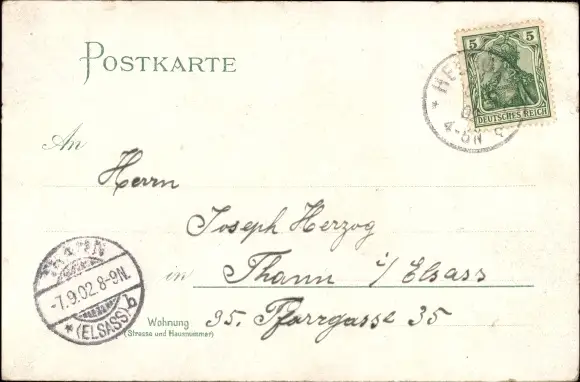 POSTKARTE
5 5
DEUTSCHES REICH
4-5N
An
Herrn
Joseph Herzog
in Thann i/Elsass
Wohnung 35. Pfarrgasse 35
(Strasse und Hausnummer)
THANN
-7.9.02.8-9N.
*(ELSASS)b